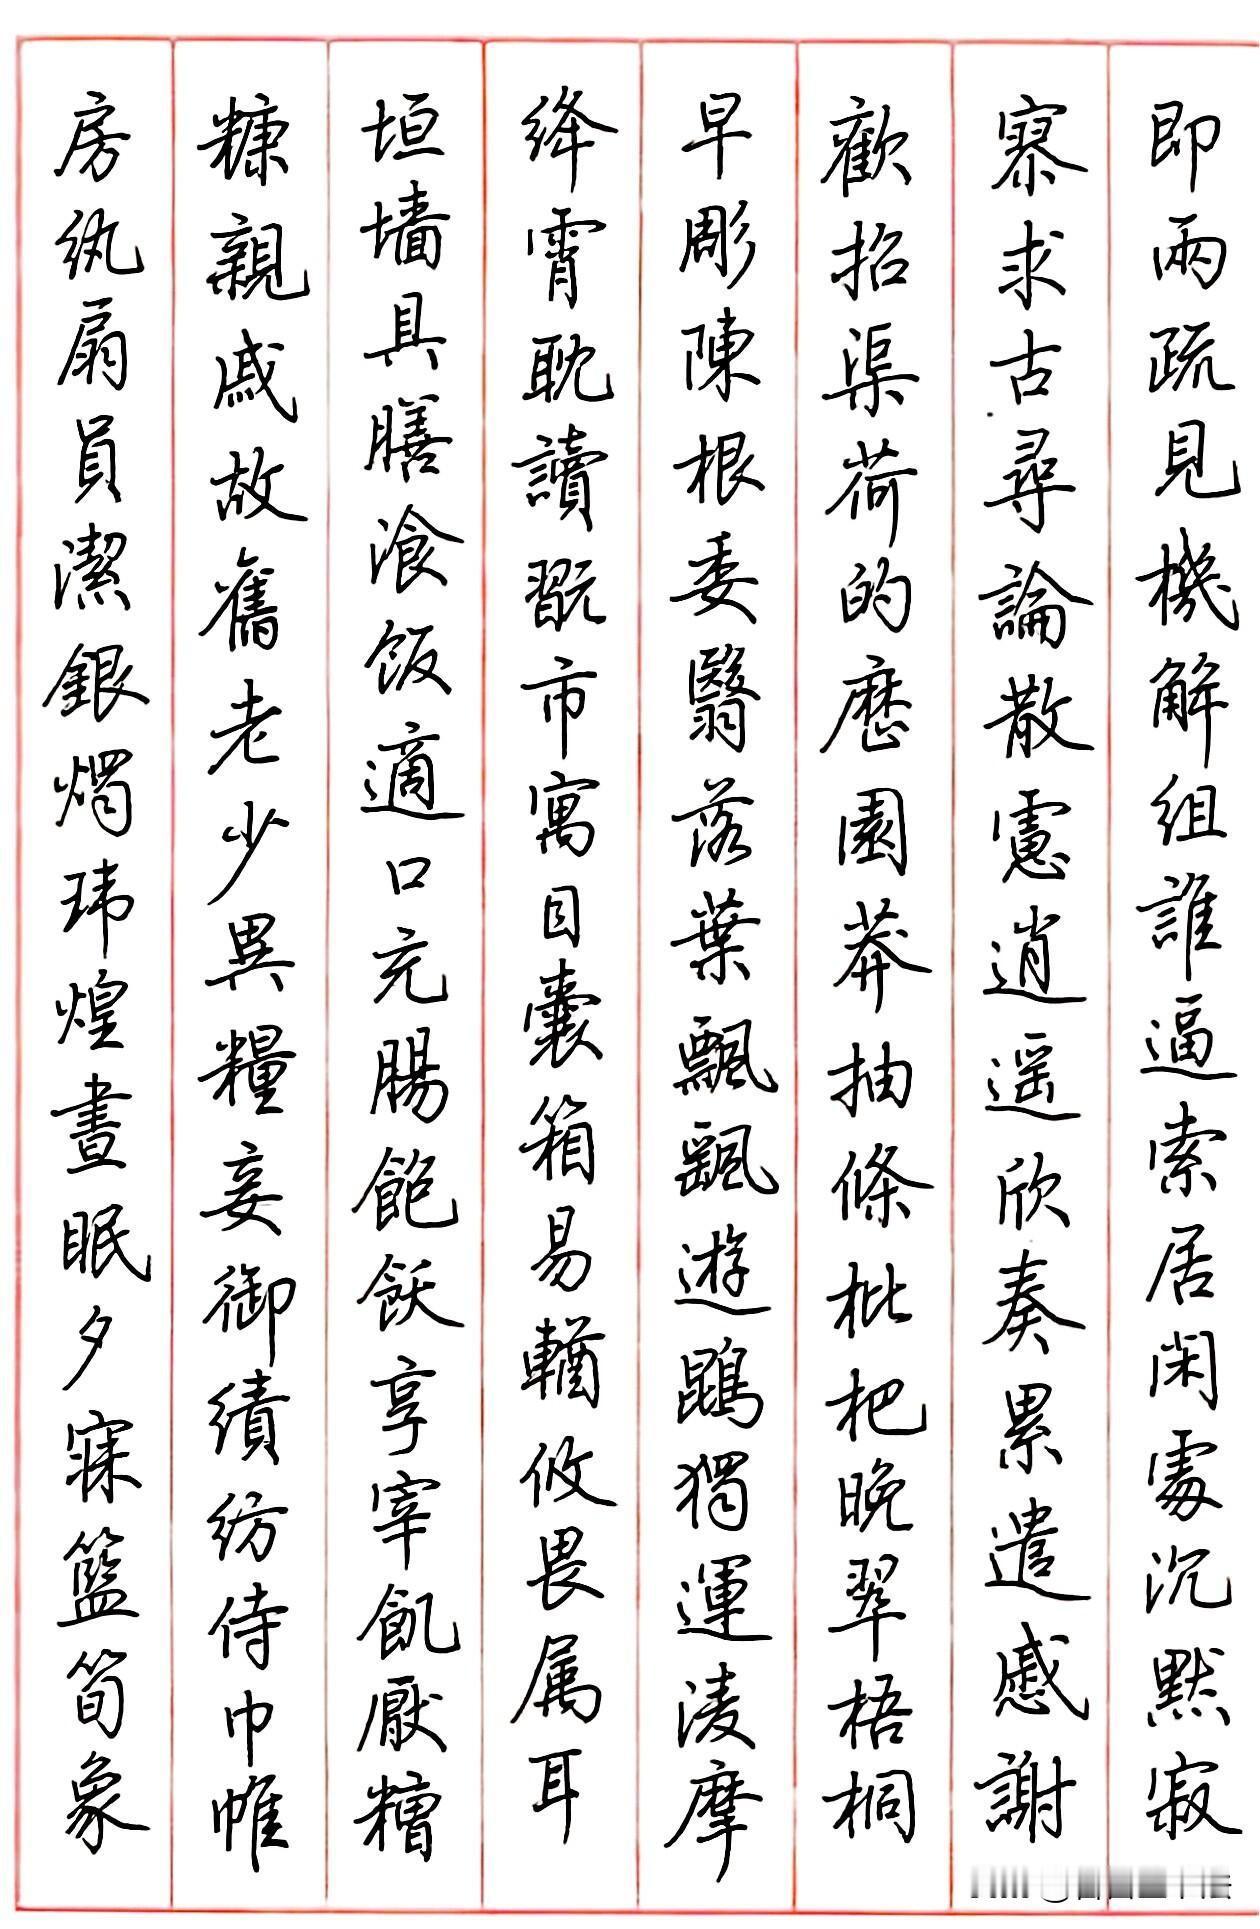 即兩疏見機解組誰逼索居閑處沉默寂
寮求古尋論散慮逍遥欣奏累遣慼謝
歡招渠荷的歷園莽抽條枇杷晚翠梧桐
早彫陳根委翳落葉飄飖遊鵾獨運淩摩
絳霄耽讀翫市寓目囊箱易輶攸畏属耳
垣墻具膳飡飯適口充腸飽飫享宰飢厭糟
糠親戚故舊老少異糧妾御績紡侍巾帷
房紈扇員潔銀燭玮煌晝眠夕寐籃筍象